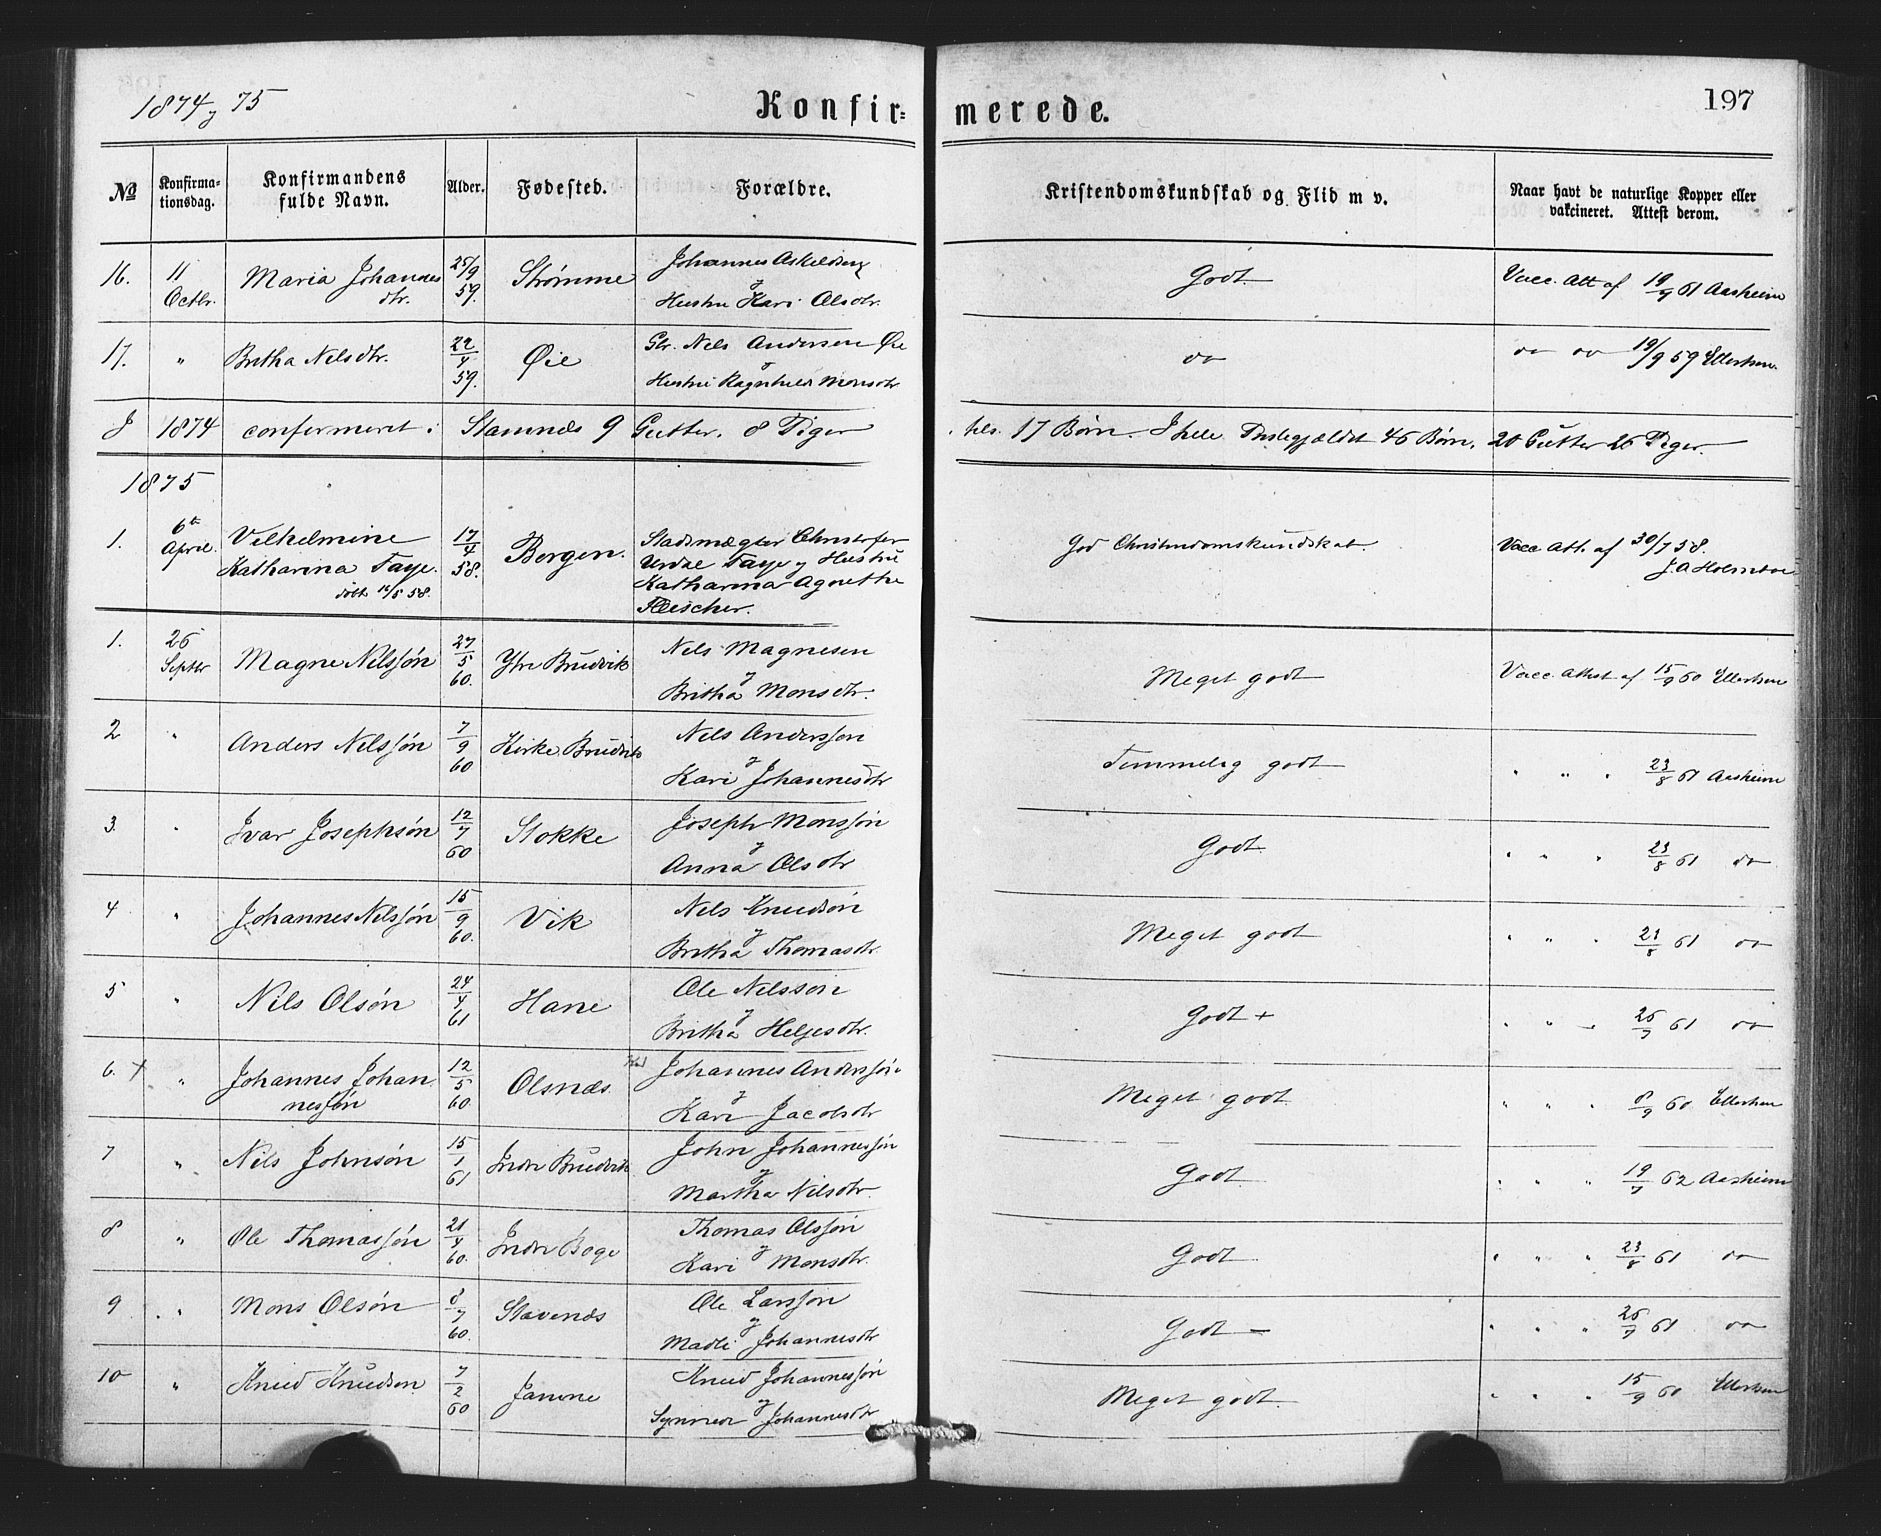 1874 y 75
Konfir=
merede.
197
No
Konfirma-
tionsdag.
Konfirmandens
fulde Navn.
Alder.
Fødested.
Forældre.
Kristendomskundskab og Flid m v.
Naar havt de naturlige Kopper eller
vakcineret. Attest derom.
16. 11 Octbr. Maria Johannes 25/9 59. Strømme Johannes Askildsen
dtr. y
Hustru Kari Olsdtr. Godt Vacc. Att af 19/9 61 Aasheim
17. " Britha Nilsdtr. 22/4 59. Øie Gbr. Nils Andersen Øie
y
Hustru Ragnhild Monsdtr. do do do 19/9 59 Ellertsen.
J 1874 confermeret i Stamnæs 9 Gutter. 8 Piger
tils. 17 Børn. I hele Præstegjældet 46 Børn, 20 Gutter 26 Piger.
1875
1. 6te April. Vilhelmine 17/4 58. Bergen. Stadsmægler Christofer
Katharina Faye. Urdal Faye y Hustru
døbt 16/5 58. Katharina Agnethe
Fleischer. God Christendomskundskab. Vacc. Att. af 30/7 58.
J. A Holmboe
1. 26 Septbr Magne Nilssøn 27/5 60. Ytre Bruvik Nils Magnesen
y
Britha Monsdtr. Meget godt Vacc. Attest af 15/9 60 Ellertsen
2 " Anders Nilssøn 7/9 60 Kirke Bruvik Nils Anderssøn
y
Kari Johannesdtr Temmelig godt " " " 23/8 61 Aasheim
3. " Ivar Josephsøn 12/7 60 Stokke Joseph Monssøn
y
Anna Olsdtr Godt " " " 23/8 61 do
4 " Johannes Nilssøn 15/9 60. Vik Nils Knudsøn
y
Britha Thomasdtr. Meget godt " " " 23/8 61 do
5 " Nils Olsøn 24/4 61 Hane Ole Nilssøn
y
Britha Helgesdtr. Godt + " " " 26/7 61 do
6. + " Johannes Johan 12/5 60 Olsnæs Johannes Anderssøn
nessøn y
Kari Jacobsdtr Meget godt " " " 8/9 60 Ellertsen
7 " Nils Johnsøn 15/1 61 Indre Bruvik John Johannessøn
y
Martha Nilsdtr. Godt " " " 19/7 62 Aasheim
8 " Ole Thomassøn 21/4 60. Indre Boge Thomas Olssøn
y
Kari Monsdtr. Godt " " " 23/8 61 do
9 " Mons Olsøn 8/7 60. Stavenæs Ole Larssøn
y
Madli Johannesdtr Godt - " " " 26/7 61 do
10 " Knud Knudsen 7/2 60 Jamne Knud Johannessøn
y
Synneva Johannesdtr Meget godt. " " " 15/9 60 Ellertsen